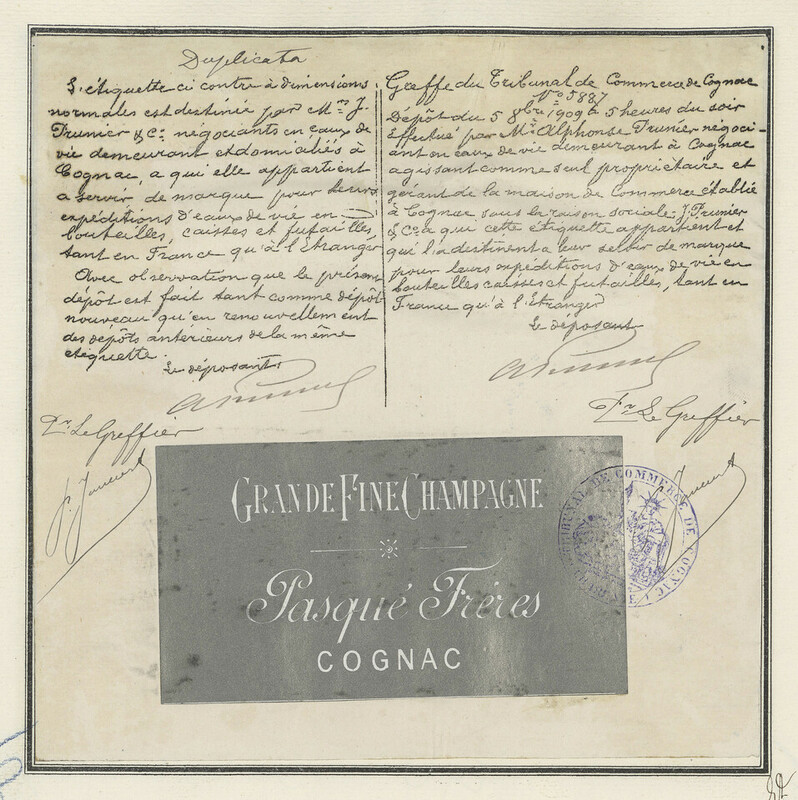 Duplicata
L'étiquette ci contre à dimensions
normales est destinée par Mrs J.
Prunier & Co négociants en eaux de
vie demeurant et domiciliés à
Cognac, a qui elle appartient
a servir de marque pour leurs
expéditions d'eaux de vie en
bouteilles, caisses et futailles,
tant en France qu'à l'Etranger
Avec observation que le présent
dépôt est fait tant comme dépôt
nouveau qu'en renouvellement
des dépôts antérieurs de la même
etiquette.
Le déposant
Pr Le Greffier
Greffe du Tribunal de Commerce de Cognac
No 5887
Dépôt du 5 8bre 1909 à 5 heures du soir
Effectué par Mr Alphonse Prunier négoci-
ant en eaux de vie demeurant à Cognac
agissant comme seul propriétaire et
gérant de la maison de Commerce établie
à Cognac sous la raison sociale J. Prunier
& Co a qui cette étiquette appartient et
qui l'a destine a leur servir de marque
pour leurs expéditions d'eaux de vie en
bouteilles caisses et futailles, tant en
France qu'à l'Etranger
Le déposant
Pr Le Greffier
GRANDE FINE CHAMPAGNE
Pasqué Fréres
COGNAC
TRIBUNAL DE COMMERCE DE COGNAC